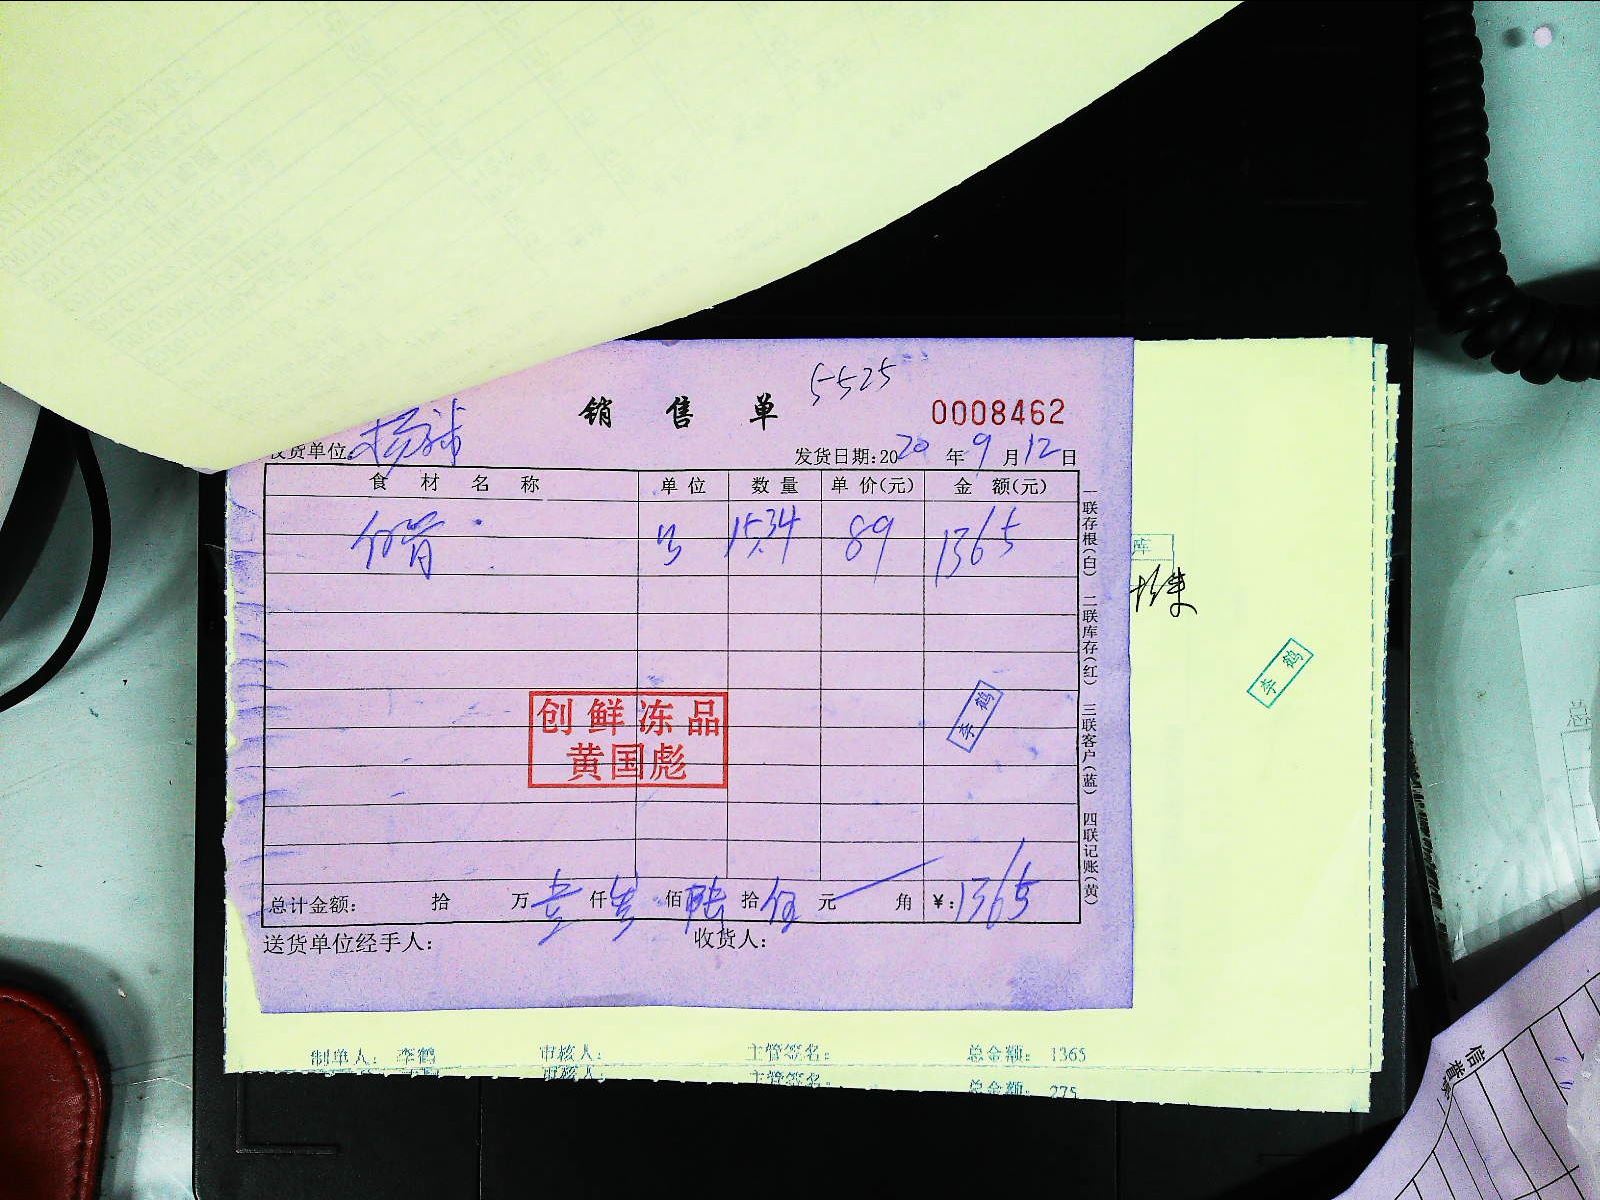 5525
销售单 0008462
收货单位: 发货日期:2020年9月12日
食材名称 单位 数量 单价(元) 金额(元)
15.34 89 1365
创鲜冻品
黄国彪
李鹤
总计金额: 拾 万壹仟叁佰陆拾伍元 角 ¥:1365
送货单位经手人: 收货人:
一联存根(白) 二联库存(红) 三联客户(蓝) 四联记账(黄)
库
李鹤
制单人: 李鹤 审核人: 主管签名: 总金额: 1365
审核人: 主管签名: 总金额: 275